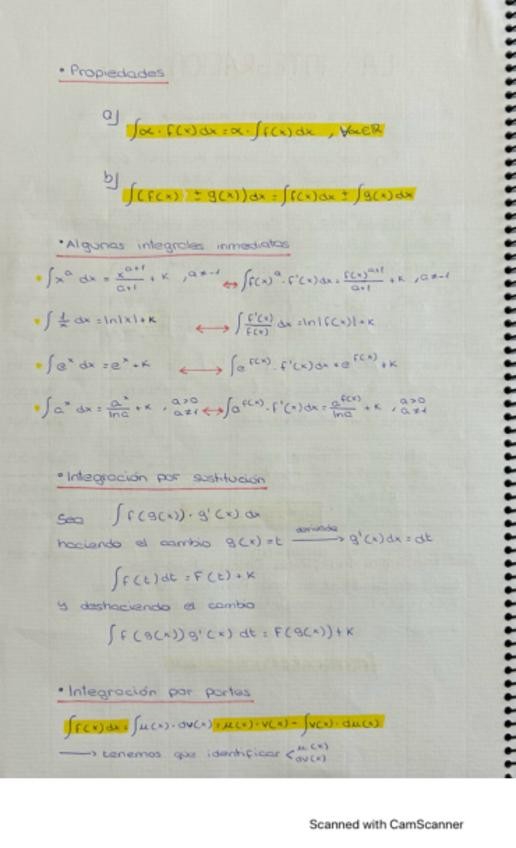 • Propiedades
a) ∫α · f(x) dx = α · ∫f(x) dx , ∀α∈R
b) ∫(f(x) ± g(x)) dx = ∫f(x) dx ± ∫g(x) dx
• Algunas integrales inmediatas
• ∫x^a dx = x^(a+1)/(a+1) + K , a≠-1 ↔ ∫f(x)^a · f'(x) dx = f(x)^(a+1)/(a+1) + K , a≠-1
• ∫1/x dx = ln|x| + K ↔ ∫f'(x)/f(x) dx = ln|f(x)| + K
• ∫e^x dx = e^x + K ↔ ∫e^f(x) · f'(x) dx = e^f(x) + K
• ∫a^x dx = a^x/lna + K , a>0 a≠1 ↔ ∫a^f(x) · f'(x) dx = a^f(x)/lna + K , a>0 a≠1
• Integración por sustitución
Sea ∫f(g(x)) · g'(x) dx
haciendo el cambio g(x) = t —derivando→ g'(x) dx = dt
∫f(t) dt = F(t) + K
y deshaciendo el cambio
∫f(g(x)) g'(x) dt = F(g(x)) + K
• Integración por partes
∫f(x) dx = ∫u(x) · dv(x) = u(x) · v(x) - ∫v(x) · du(x)
→ tenemos que identificar < u(x) dv(x)
Scanned with CamScanner